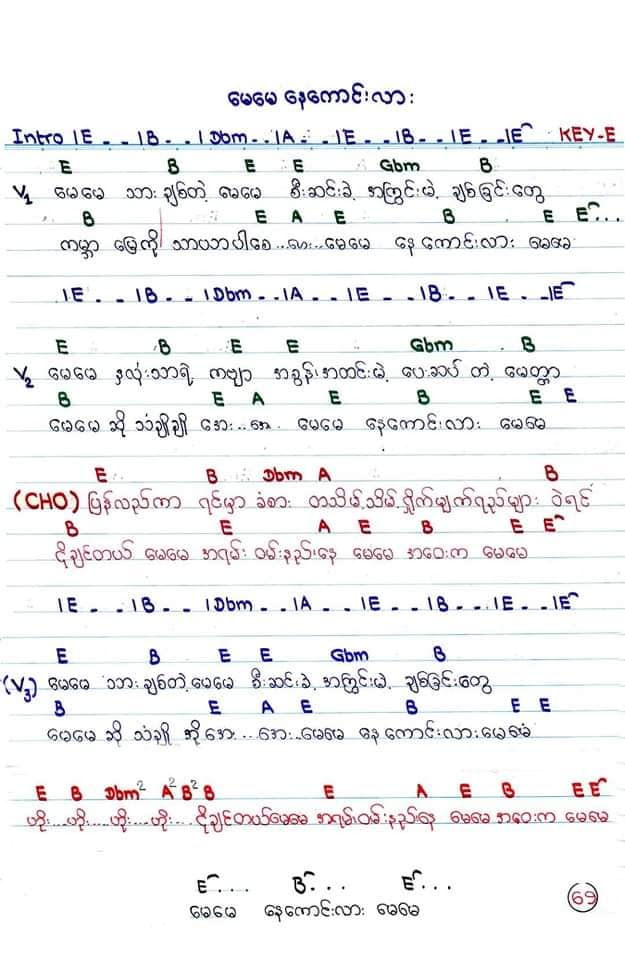 မေမေ နေကောင်းလား
Intro | E - - | B - - | Dbm - - | A - - | E - - | B - - | E - - | E KEY-E
E B E E Gbm B
V1 မေမေ သား ချစ်တဲ့ မေမေ စီးဆင်းခဲ့ အကြွင်းမဲ့ ချစ်ခြင်းတွေ
B E A E B E E...
ကမ္ဘာ မြေကို သာယာပါစေ ... မေမေ နေ ကောင်းလား မေမေ
| E - - | B - - | Dbm - - | A - - | E - - | B - - | E - - | E
E B E E Gbm B
V2 မေမေ နှလုံးသားရဲ့ ကဗျာ အခွန်အတင်းမဲ့ ပေးဆပ် တဲ့ မေတ္တာ
B E A E B E E
မေမေ ဆို သံချိုချို အေး.. မေမေ နေကောင်းလား မေမေ
E B Dbm A B
(CHO) ပြန်လည်ကာ ရင်မှာ ခံစား တသိမ့်သိမ့် ရှိုက်မျက်ရည်များ ဝဲရင်
B E A E B E E
ငိုချင်တယ် မေမေ အရမ်း ဝမ်းနည်းနေ မေမေ အဝေးက မေမေ
| E - - | B - - | Dbm - - | A - - | E - - | B - - | E - - | E
E B E E Gbm B
(V3) မေမေ သား ချစ်တဲ့ မေမေ စီးဆင်းခဲ့ အကြွင်းမဲ့ ချစ်ခြင်းတွေ
B E A E B E E
မေမေ ဆို သံချို အေး...အေး..မေမေ နေ ကောင်းလား မေမေ
E B Dbm² A² B² B E A E B E E
ဟိုး...ဟိုး....ဟိုး...ဟိုး... ငိုချင်တယ်မေမေ အရမ်းဝမ်းနည်းနေ မေမေ အဝေးက မေမေ
E... B... E...
မေမေ နေကောင်းလား မေမေ
69